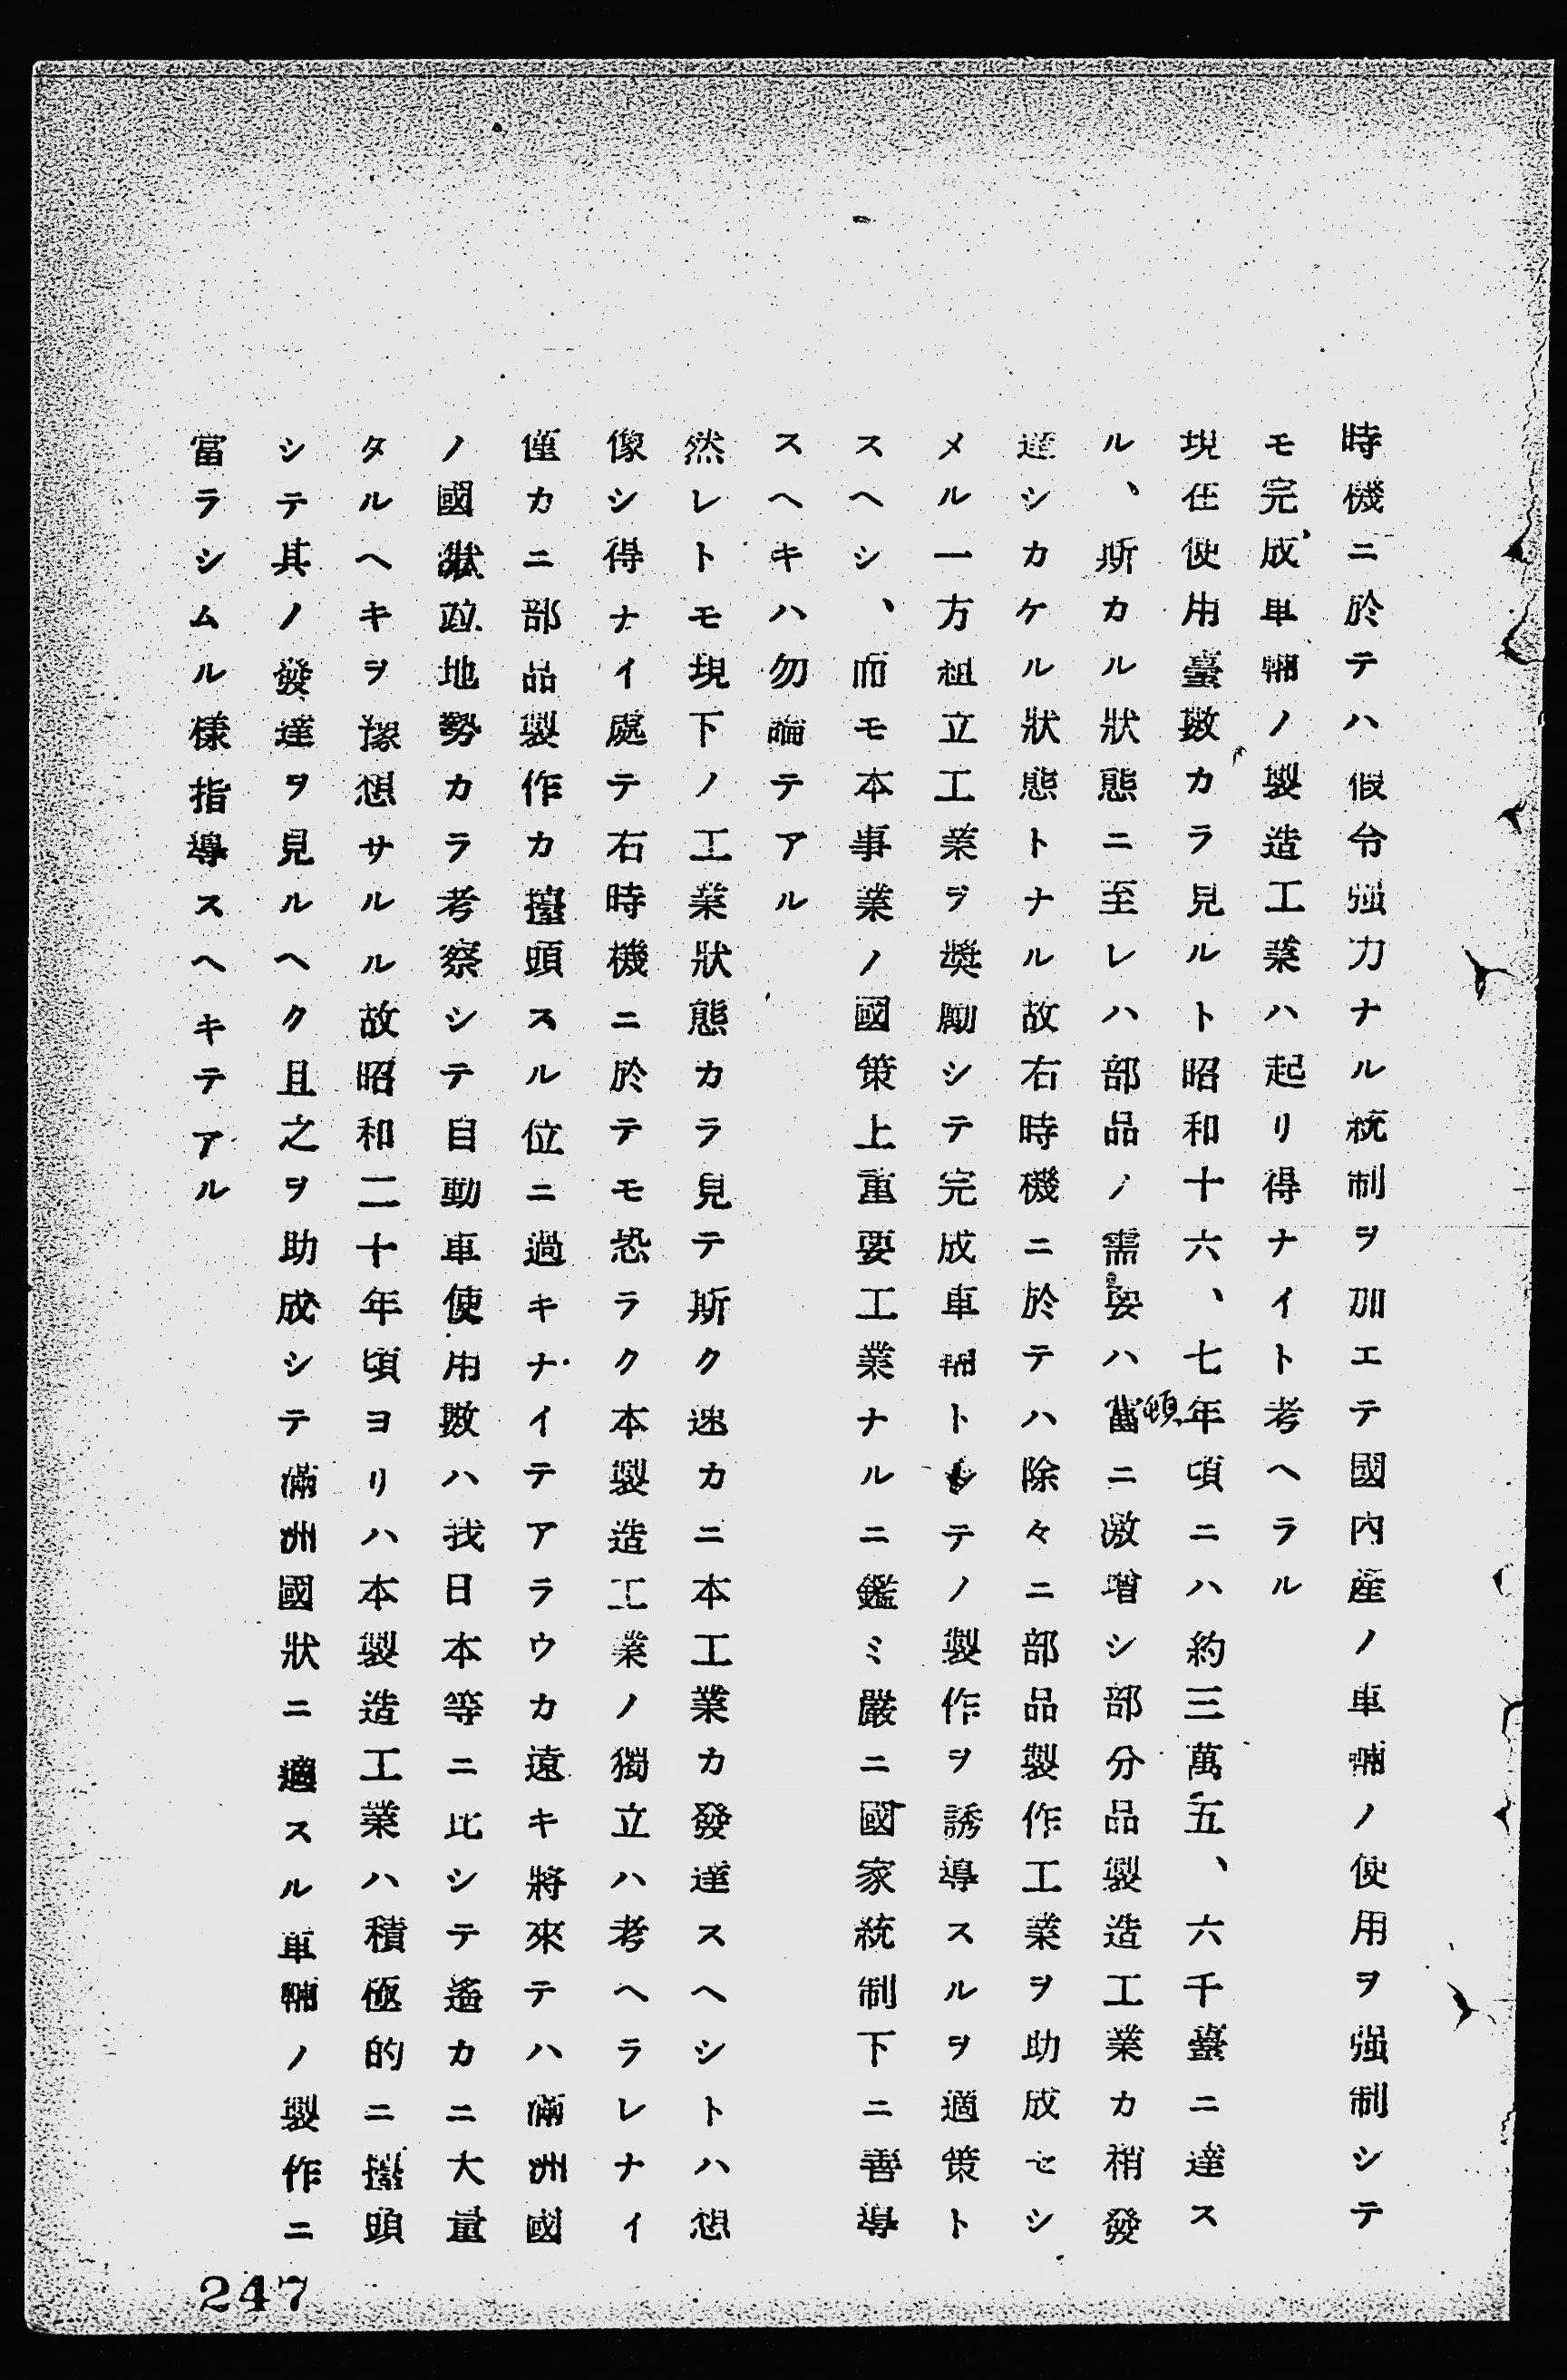 時機ニ於テハ假令强力ナル統制ヲ加エテ國內產ノ車輛ノ使用ヲ强制シテ
モ完成車輛ノ製造工業ハ起リ得ナイト考ヘラル
現在使用臺數カラ見ルト昭和十六、七年頃ニハ約三萬五、六千臺ニ達ス
ル、斯カル狀態ニ至レハ部品ノ需要ハ頓ニ激增シ部分品製造工業カ稍發
達シカケル狀態トナル故右時機ニ於テハ除々ニ部品製作工業ヲ助成セシ
メル一方組立工業ヲ奬勵シテ完成車輛トシテノ製作ヲ誘導スルヲ適策ト
スヘシ、而モ本事業ノ國策上重要工業ナルニ鑑ミ嚴ニ國家統制下ニ善導
スヘキハ勿論テアル
然レトモ現下ノ工業狀態カラ見テ斯ク速カニ本工業カ發達スヘシトハ想
像シ得ナイ處テ右時機ニ於テモ恐ラク本製造工業ノ獨立ハ考ヘラレナイ
僅カニ部品製作カ擡頭スル位ニ過キナイテアラウカ遠キ將來テハ滿洲國
ノ國狀竝地勢カラ考察シテ自動車使用數ハ我日本等ニ比シテ遙カニ大量
タルヘキヲ豫想サルル故昭和二十年頃ヨリハ本製造工業ハ積極的ニ擡頭
シテ其ノ發達ヲ見ルヘク且之ヲ助成シテ滿洲國狀ニ適スル車輛ノ製作ニ
當ラシムル樣指導スヘキテアル
247